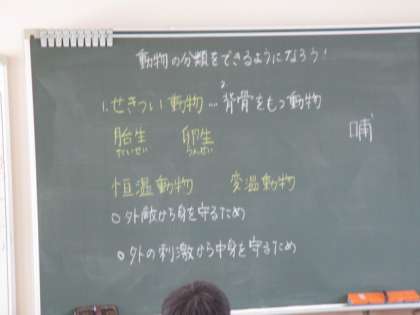 動物の分類をできるようになろう!
1.せきつい動物…背骨をもつ動物
胎生 卵生
たいせい らんせい
哺
恒温動物 変温動物
○外敵から身を守るため
○外の刺激から中身を守るため